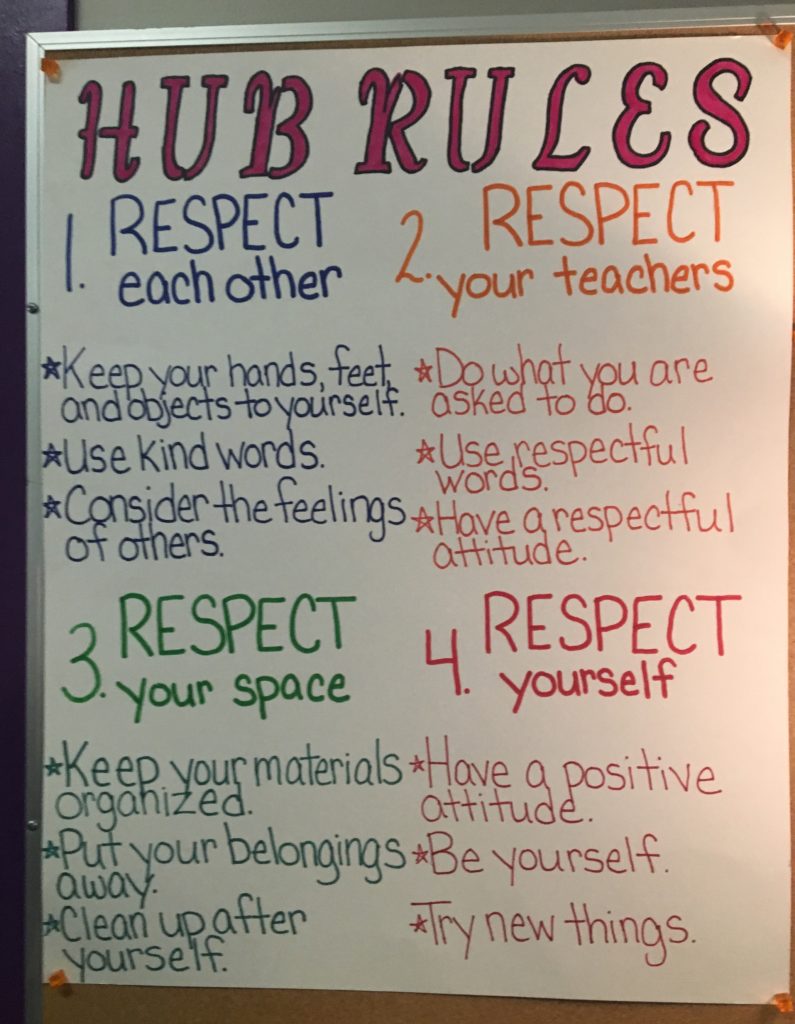 HUB RULES
1. RESPECT
each other
★Keep your hands, feet,
and objects to yourself.
★Use kind words.
★Consider the feelings
of others.
2. RESPECT
your teachers
★Do what you are
asked to do.
★Use respectful
words.
★Have a respectful
attitude.
3. RESPECT
your space
★Keep your materials
organized.
★Put your belongings
away.
★Clean up after
yourself.
4. RESPECT
yourself
★Have a positive
attitude.
★Be yourself.
★Try new things.